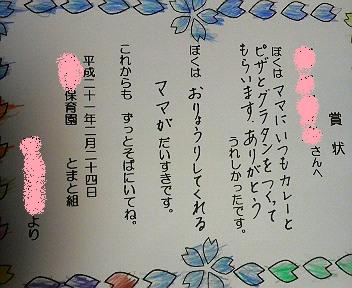 賞状
さんへ
ぼくは ママにいつもカレーと
ピザとグラタンをつくって
もらいます。ありがとう
うれしかったです。
ぼくは おりょうりしてくれる
ママが だいすきです。
これからも ずっとそばにいてね。
平成二十一年二月二十四日
保育園 とまと組
より